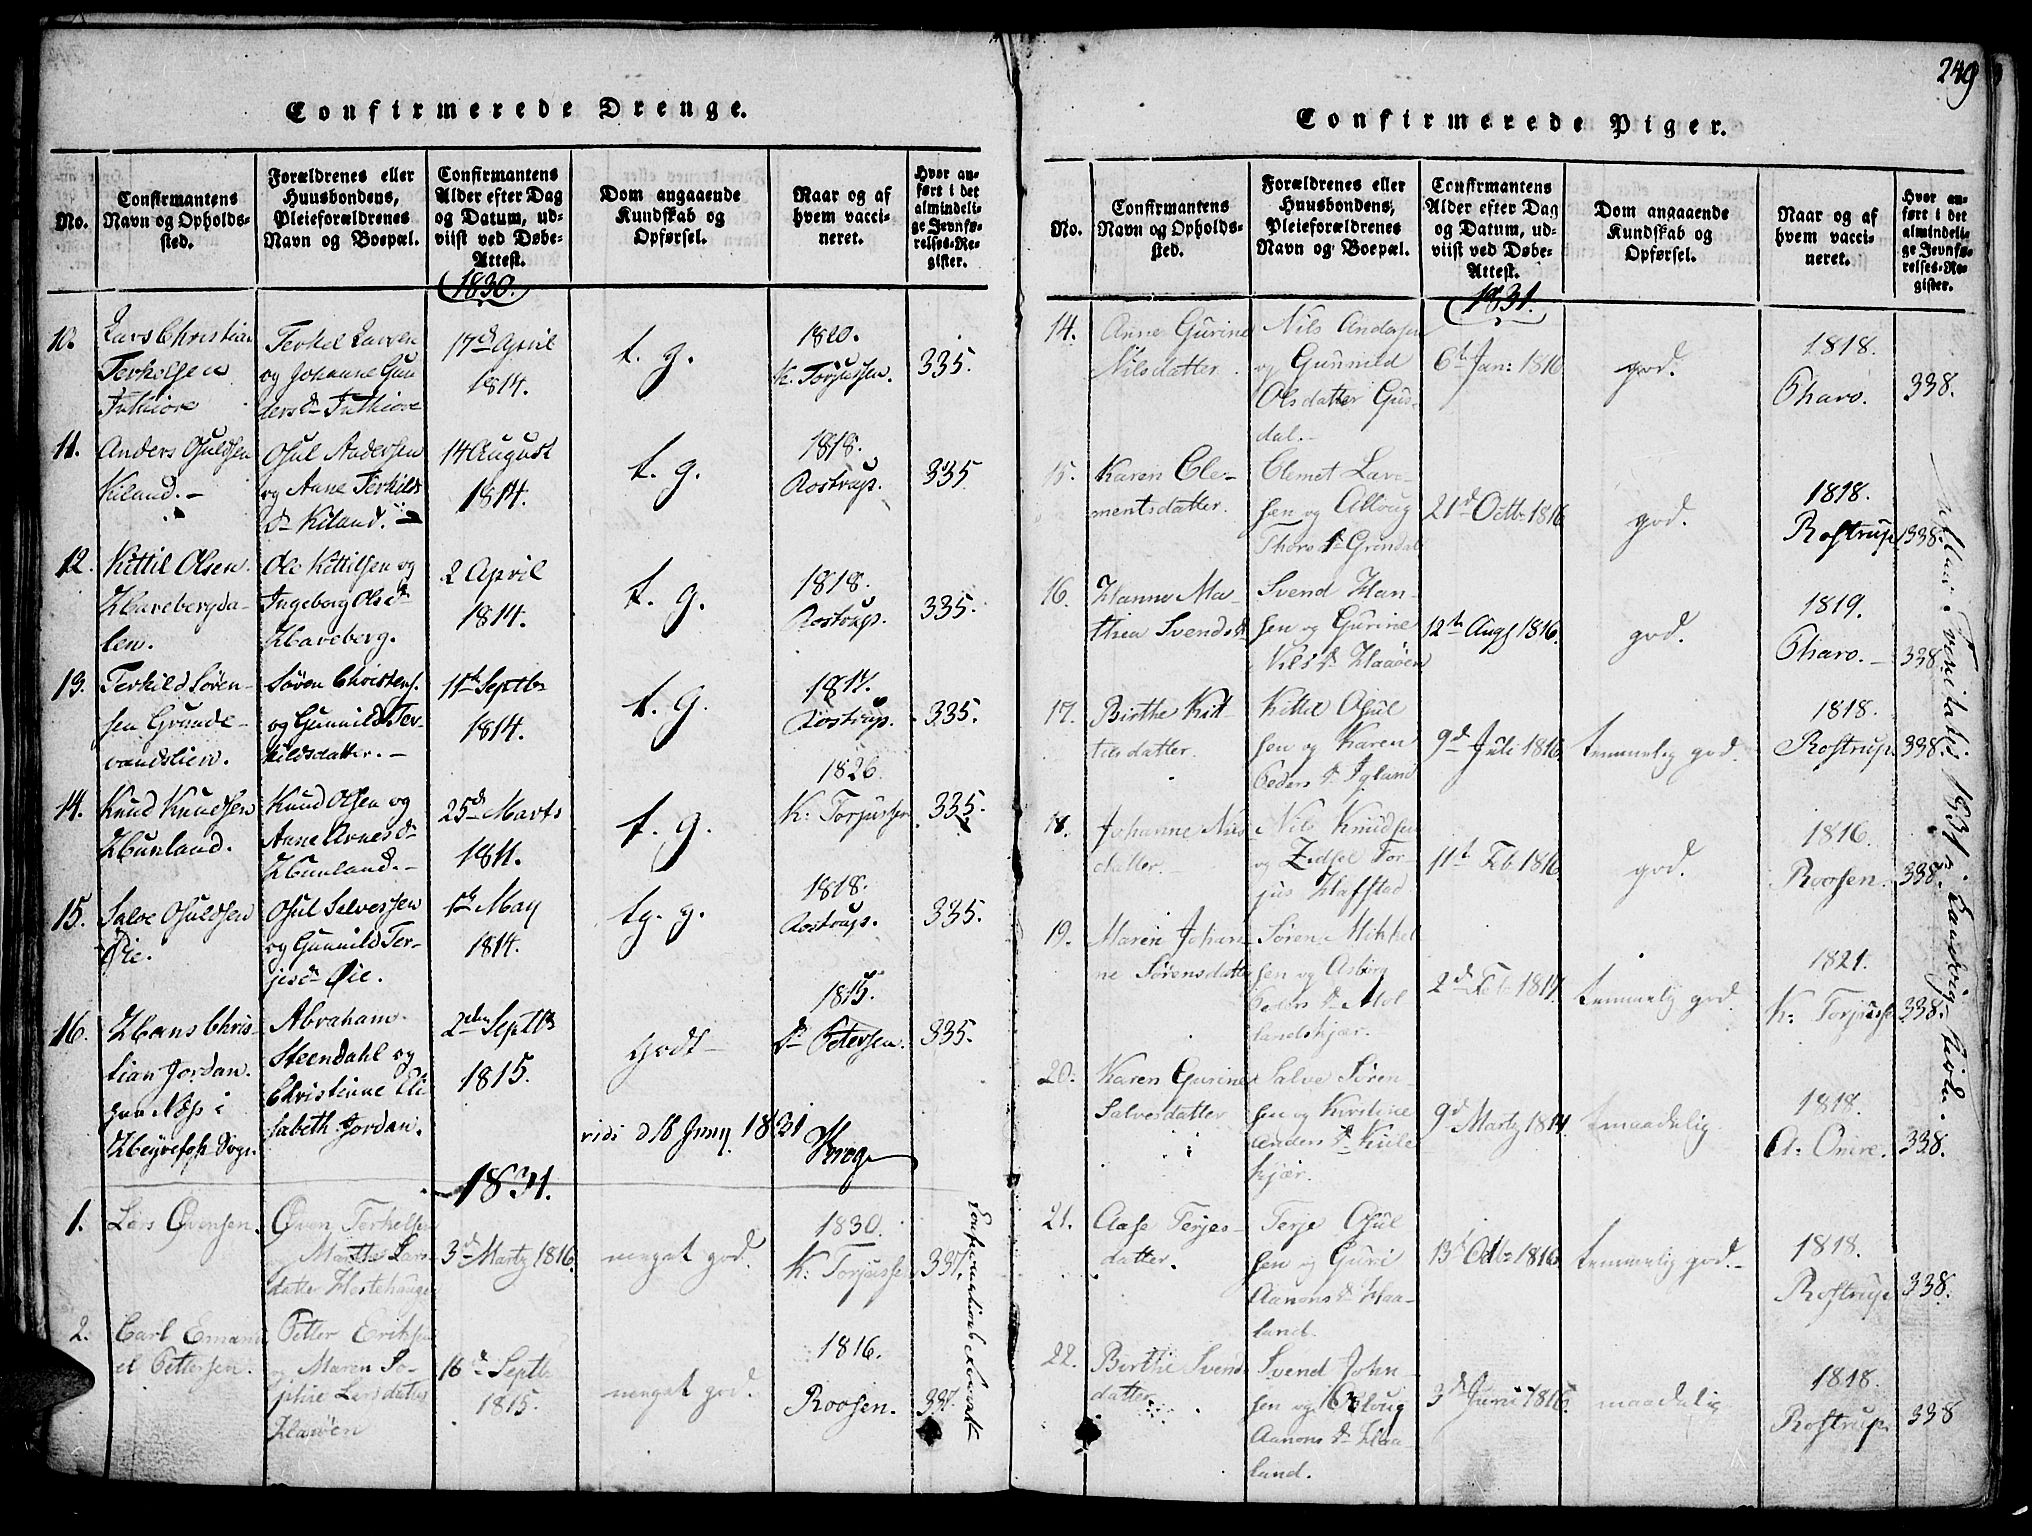 249
Confirmerede Drenge.
No.
Confirmantens
Navn og Opholds-
sted.
Forældrenes eller
Huusbondens,
Pleieforældrenes
Navn og Boepæl.
Confirmantens
Alder efter Dag
og Datum, ud-
viist ved Døbe-
Attest.
Dom angaaende
Kundskab og
Opførsel.
Naar og af
hvem vacci-
neret.
Hvor an-
ført i det
almindeli-
ge Jevnfø-
relses-Re-
gister.
1830.
10.
Lars Christian
Terkelsen
Terkel Larsen
og Johanne Gun
ders dr
17d April
1814.
t. g.
1820.
K. Torjussen.
335.
11.
Anders Osuldsen
Kiland.-
Osul Andersen
og Anne Terkilds
dr Kiland.-
14 August
1814.
t. g.
1818.
Rostrup.
335
12.
Kittil Olsen
Harebergda-
len.
Ole Kittilsen og
Ingeborg Olsdr
Hareberg.
2 April
1814.
t. g.
1818.
Rostrup.
335.
13.
Terkild Søren-
sen Grunde-
vandslien.
Søren Christens.
og Gunnild Ter-
kildsdatter.-
11te Septbr
1814.
t. g.
1817.
Rostrup.
335.
14.
Knud Knudsen
Hunland.
Knud Olsen og
Anne Arnesdr
Hunland.-
25d Marts
1811.
t. g.
1826.
K: Torjussen
335.
15.
Salve Osuldsen
Øie.
Osul Salvessen
og Gunnild Ter-
jesdr Øie.
1te May
1814.
tg. g.
1818.
Rostrup.
335.
16.
Hans Chris-
tian Jordan.
Næs i
Abraham
Steendahl og
Christinne Eli
sabeth Jordan.
2den Septbr
1815.
godt
1815.
Dr Petersen.
335.
vidi d 18 Juny 1831
Krog
1831.
1.
Lars Øvensen.
Øven Terkelsen
Marthe Lars
datter Hestehaugen
3d Martz 1816.
meget god.
1830.
K: Torjussen
337.
2.
Carl Emanu
el Pettersen.
Petter Eriksen
og Maren So-
phie Larsdatter
Haaøen
16d Septbr
1815.
meget god.
1816.
Roosen.
337.
Confirmerede Piger.
No.
Confirmantens
Navn og Opholds-
sted.
Forældrenes eller
Huusbondens,
Pleieforældrenes
Navn og Boepæl.
Confirmantens
Alder efter Dag
og Datum, ud-
viist ved Døbe-
Attest.
Dom angaaende
Kundskab og
Opførsel.
Naar og af
hvem vacci-
neret.
Hvor an-
ført i det
almindeli-
ge Jevnfø-
relses-Re-
gister.
1831.
14.
Anne Gurine
Nilsdatter.
Nils Andersen
og Gunnild
Olsdatter Gus-
dal.-
6te Jan: 1816
god.
1818.
Tharo.
338.
15.
Karen Cle-
mentsdatter.
Clemet Lars-
sen og Alloug
Thorsdr Grindal
21d Octbr 1816
god.
1818.
Rostrup
338.
16.
Hanne Ma-
thea Svendsdr
Svend Han-
sen og Gurine
Nilsdr Haaøen
12te Aug 1816.
god.
1819.
Tharo.-
338
17.
Birthe Kit-
tilsdatter.
Kittel Osul
sen og Karen
Peders dr Igland
9d Juli 1816.
temmelig god.
1818.
Rostrup.
338.
18.
Johanne Nils
datter.-
Nils Knudsen
og Zidsel Tor-
jus Hafstad
11te Feb 1816
god.
1816.
Roosen.
338
19.
Maren Johan
ne Sørensdatter
Søren Mikkel
sen og Asborg
Peders dr Mol
landskjær.
2d Feb 1817.
temmelig god.
1821.
K: Torjussen
338.
20.
Karen Gurine
Salvesdatter
Salve Søren-
sen og Kirstine
kjær.
9d Martz 1814
tmaadelig.
1818.
A: Omre.
338.
21.
Aase Terjes-
datter.
Terje Osul
sen og Guri
Aanons dr Haa-
land.
13d Octbr 1816
temmelig god.-
1818.
Rostrup
338.
22.
Birthe Svends
datter.
Svend John-
sen og Olloug
Aanons dr Haa-
land.
3d Juni 1816.
maadelig
1818.
Rostrup.
338